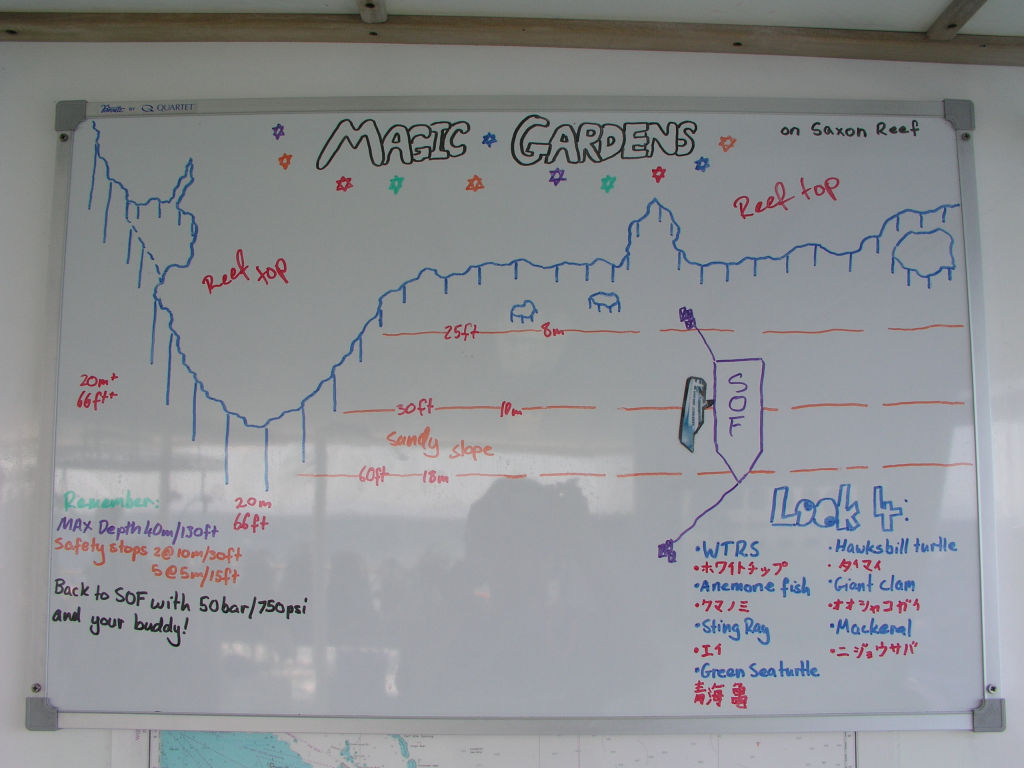 BY QUARTET
MAGIC GARDENS
on Saxon Reef
Reef top
Reef top
25ft 8m
20m+
66ft+
30ft 10m
SOF
Sandy slope
60ft 18m
20m
66ft
Remember:
MAX Depth 40m/130ft
Safety stops 2@10m/30ft
5@5m/15ft
Back to SOF with 50bar/750psi
and your buddy!
Look 4:
•WTRS
•ホワイトチップ
•Anemone fish
•クマノミ
•Sting Ray
•エイ
•Green Sea turtle
青海亀
•Hawksbill turtle
•タイマイ
•Giant clam
•オオシャコガイ
•Mackeral
•ニジョウサバ